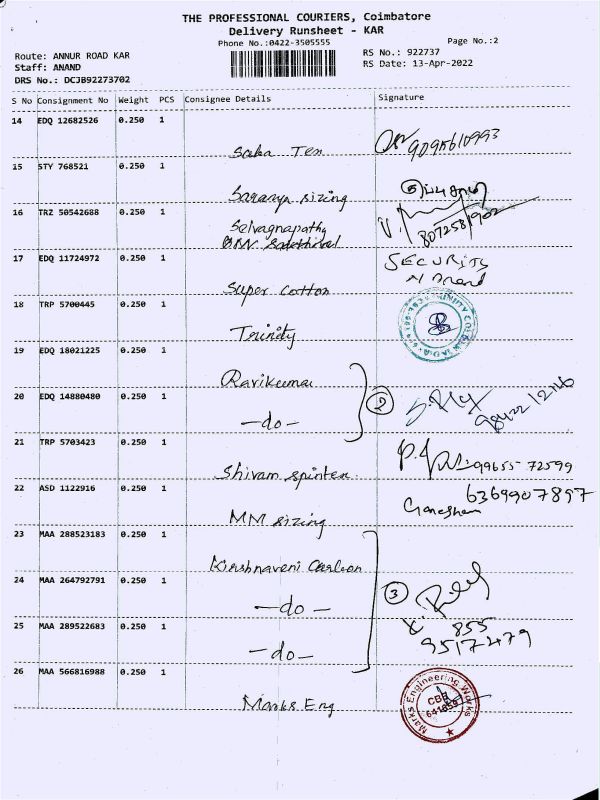 THE PROFESSIONAL COURIERS, Coimbatore
Delivery Runsheet - KAR
Phone No.:0422-3505555
Page No.:2
Route: ANNUR ROAD KAR
RS No.: 922737
Staff: ANAND
RS Date: 13-Apr-2022
DRS No.: DCJB92273702
S No Consignment No Weight PCS Consignee Details Signature
14 EDQ 12682526 0.250 1
Saba Tex
15 STY 768521 0.250 1
Saranya sizing
16 TRZ 50542688 0.250 1
Selvagnapathy
17 EDQ 11724972 0.250 1
SECURITY
Super Cotton
18 TRP 5700445 0.250 1
Trinity
19 EDQ 18021225 0.250 1
Ravikumar
20 EDQ 14880480 0.250 1
2
-do-
21 TRP 5703423 0.250 1
99655 72599
Shivam spintex
22 ASD 1122916 0.250 1
6369907897
Ganeshan
MM sizing
23 MAA 288523183 0.250 1
Kirshnaveni Carbon
24 MAA 264792791 0.250 1
3
-do-
25 MAA 289522683 0.250 1
855
9517479
-do-
26 MAA 566816988 0.250 1
Marks Engineering Works
CBE
Marks Eng